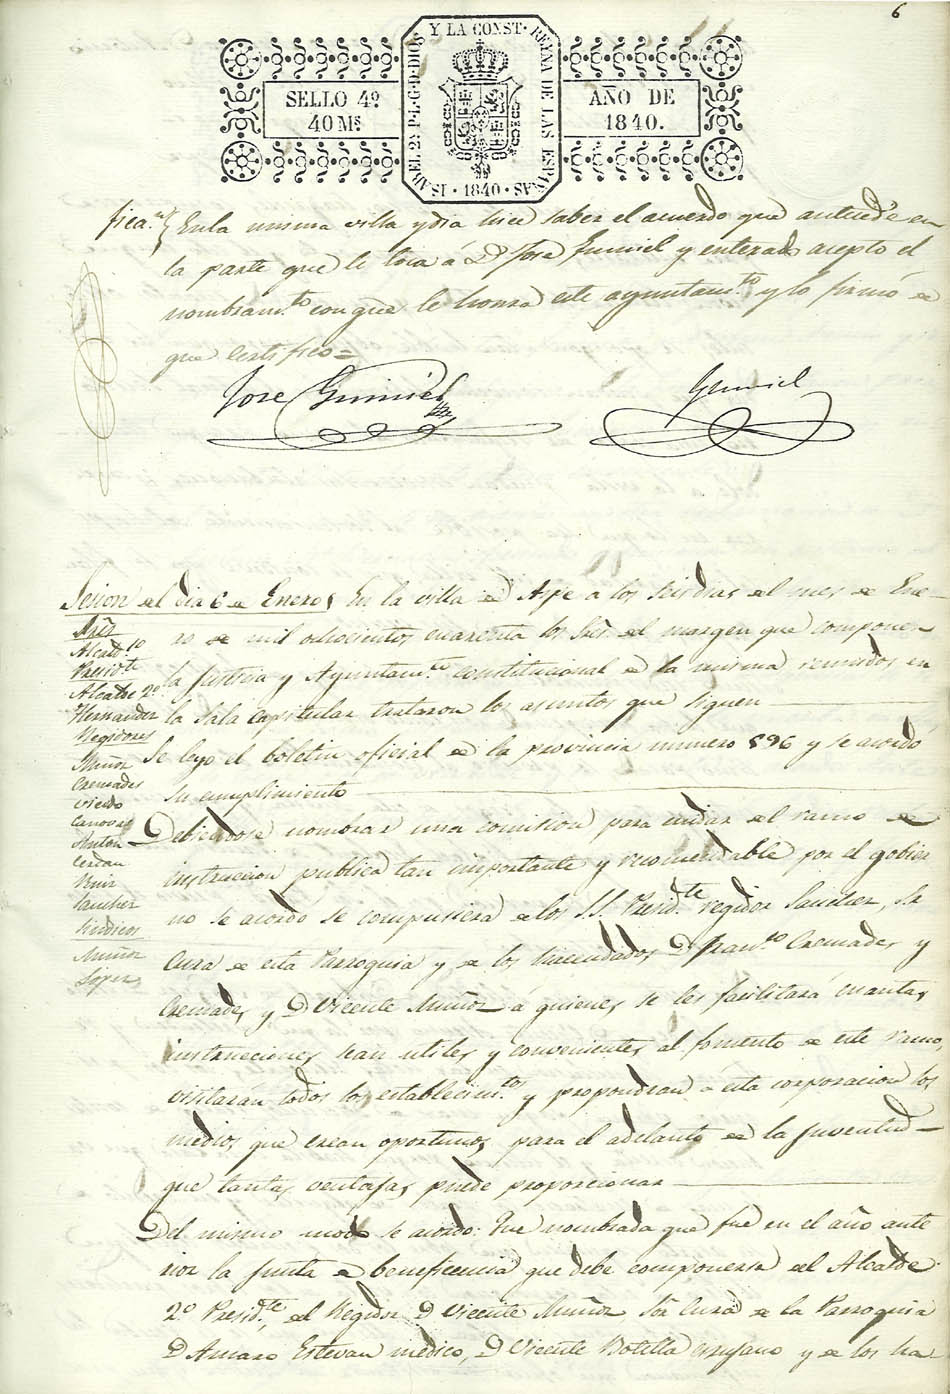 6
ISABEL 2ª P.L.G.D.DIOS Y LA CONST. REYNA DE LAS ESPAÑAS
SELLO 4º
40 Ms.
AÑO DE
1840.
· 1840 ·
En la misma villa y dia hice saber el acuerdo que antecede en
la parte que le toca á Dn Jose Gumiel y enterado acepto el
nombramto. con que le honra este ayuntamto. y lo firmó de
que certifico=
Jose Gumiel
Gumiel
Sesion del dia 6 de Enero En la villa de Aspe a los seis dias del mes de Ene-
Sres
ro de mil ochocientos cuarenta los Sres. del margen que componen
Alcalde 1º
Presidte
la Justicia y Ayuntamto. constitucional de la misma reunidos en
Alcalde 2º
Hernandez
la Sala Capitular trataron los asuntos que siguen
Regidores
Se leyo el boletin oficial de la provincia numero 596 y se acordó
Muñoz
Cremades
su cumplimiento
Viedo
Canovas
Debiendose nombrar una comision para cuidar del ramo de
Anton
Cerdan
instruccion publica tan importante y recomendable por el gobier
Ruiz
Sanchez
no se acordo se compusiera de los S.S. Presidte. regidor Sanchez, Sr
Sindicos
Muñoz
Cura de esta Parroquia y de los hacendados D. Franco. Cremades y
Lopez
Cremades y D Vicente Muñoz á quienes se les facilitará cuantas
instrucciones sean utiles y convenientes al fomento de este ramo,
visitarán todos los establecimtos. y propondran á esta corporacion los
medios que crean oportunos para el adelanto de la juventud
que tantas ventajas puede proporcionar
Del mismo modo se acordo: Fue nombrada que fué en el año ante
rior la Junta de beneficencia que debe componerse del Alcalde
2º Presidte., del Regidor D Vicente Muñoz Sor Cura de la Parroquia
D Amaro Estevan medico, D Vicente Botella cirujano y de los ha-